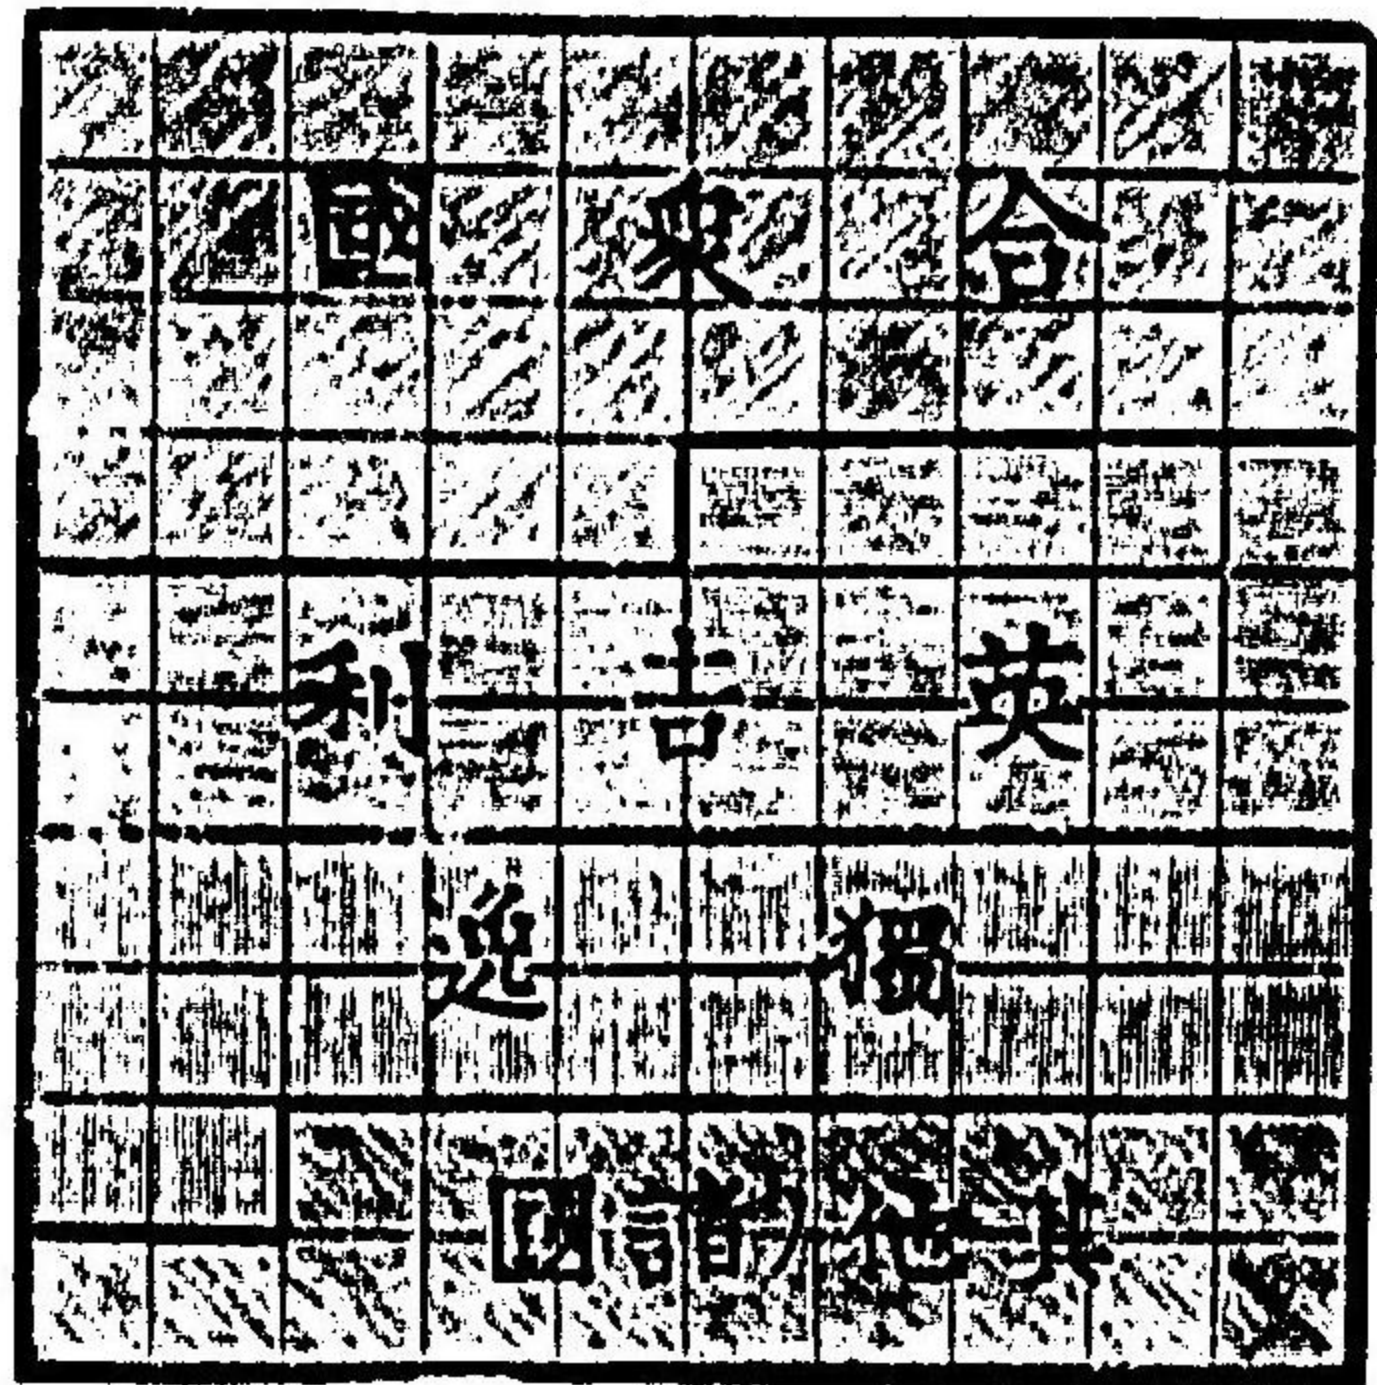 合衆國
英吉利
獨逸
其他ノ諸國